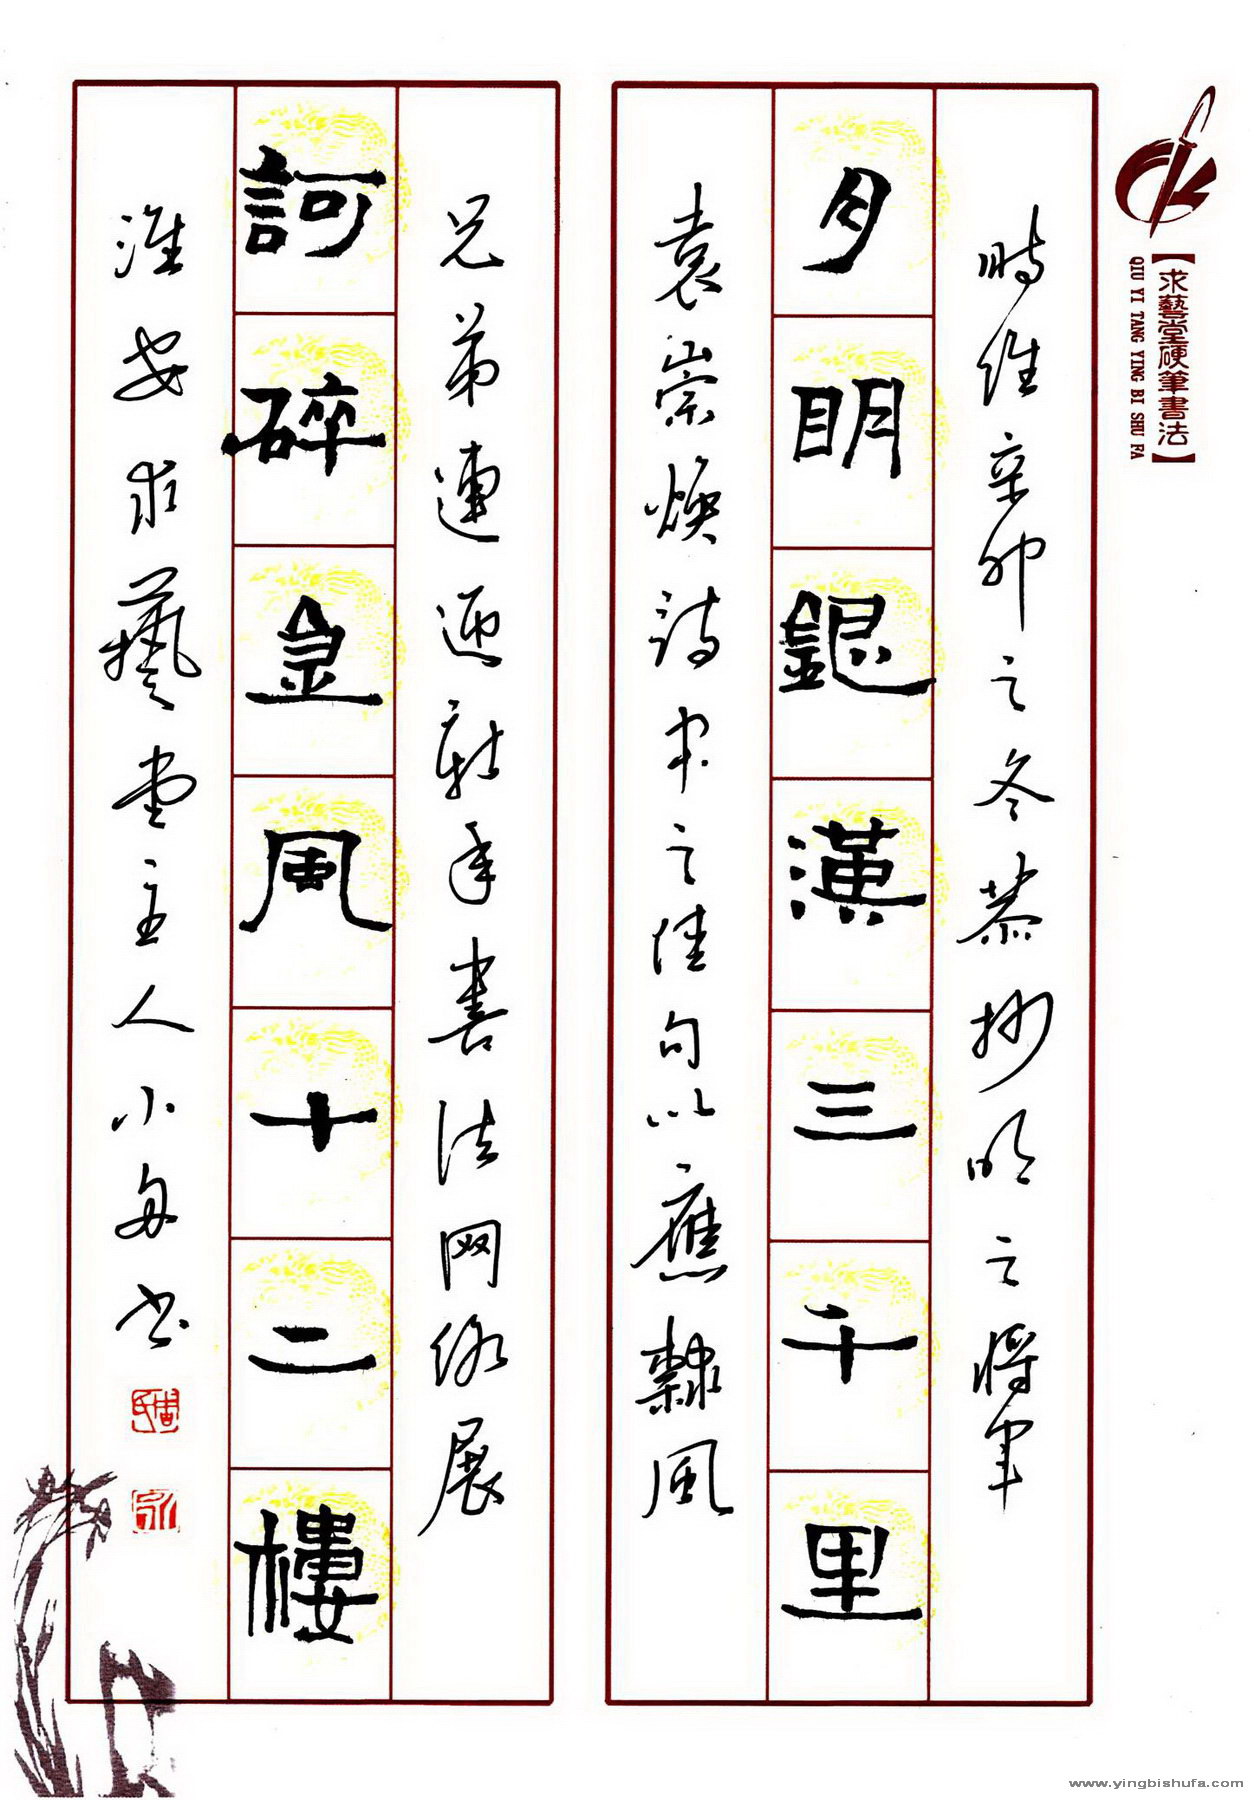 【求藝堂硬筆書法】
QIU YI TANG YING BI SHU FA
時维辛卯之冬恭抄明之將軍
月明銀漢三千里
袁崇煥詩中之佳句以應隸風
兄弟連迎新年書法网络展
訶碎金風十二樓
淮安求藝堂主人小书
www.yingbishufa.com